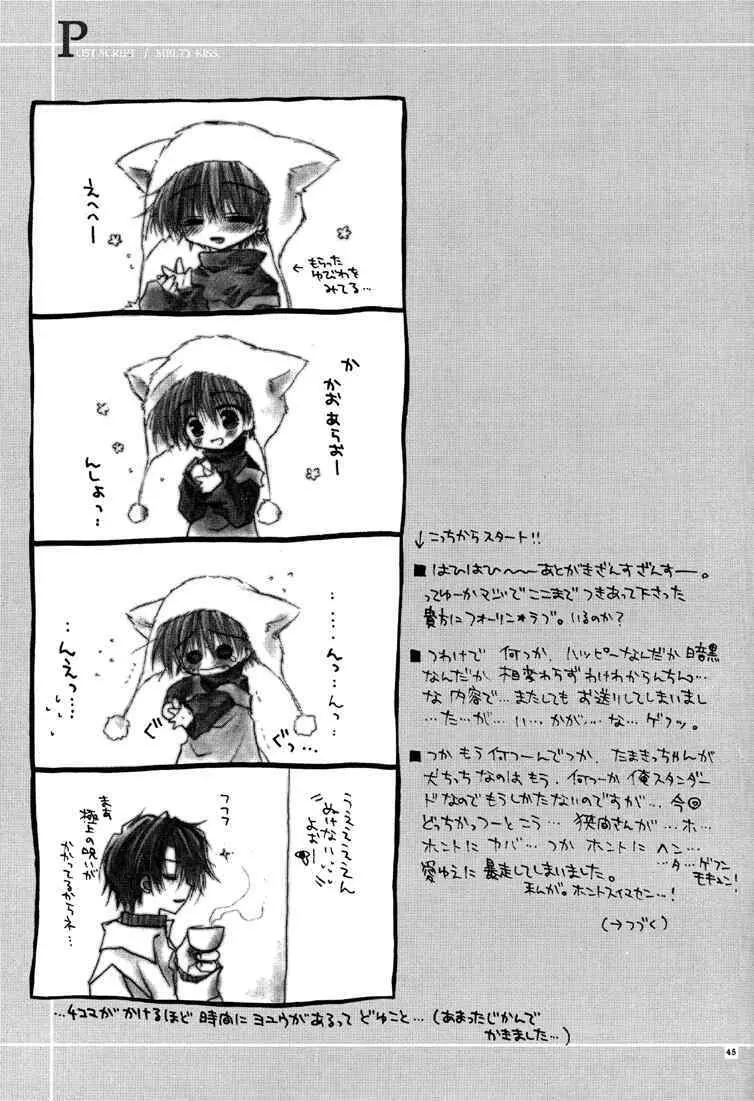 POST SCRIPT / MELTY KISS
えへへー
←もらった
ゆびわを
みてる…
か
かおあらおー
んしょっ…
…んっ…んっ…
…んえっ…
ぐっ…
ぐ
うええええん
ぬけない…
よおー
フフフ
まあ
極上の呪が
かかってるからネ…
…4コマがかけるほど時間にヨユウがあるってどゆこと…(あまったじかんで
かきました…)
↓こっちからスタート!!
■はひはひ〜〜あとがきざんすざんすー。
ってゆーかマジでここまでつきあって下さった
貴方にフォーリン★ラブ。いるのか?
■つわけで何つか、ハッピーなんだか暗黒
なんだか相変わらずわけわからんちんっ…
な内容で…またしてもお送りしてしまいまし
…た…が…い…かが…な…ゲフッ。
■つかもう何つーんでつか、たまきっちゃんが
犬ちっちなのはもう、何つーか俺スタンダー
ドなのでもうしかたないのですが…今回
どっちかっつーとこう…狭間さんが…ホ…
ホントにヤバ…つかホントにヘン…
…タ…ゲフン
モキュン!
愛ゆえに暴走してしまいました。
私が。ホントスイマセン…!
(→つづく)
45